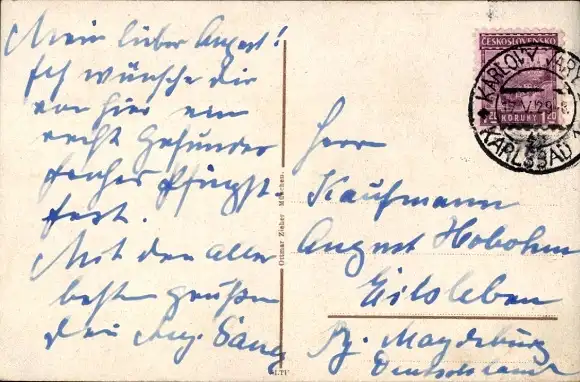 Mein lieber August!
Ich wünsche dir
von hier ein
recht gesundes
frohes Pfingst-
fest.
Mit den aller
besten Grüßen
dein Aug.
Ottmar Zieher München.
ČESKOSLOVENSKO
1.20 KORUNY 1.20
KARLOVY VARY
V 29
KARLSBAD
Herrn
Kaufmann
August Hobohm
Eilsleben
Bz. Magdeburg
Deutschland